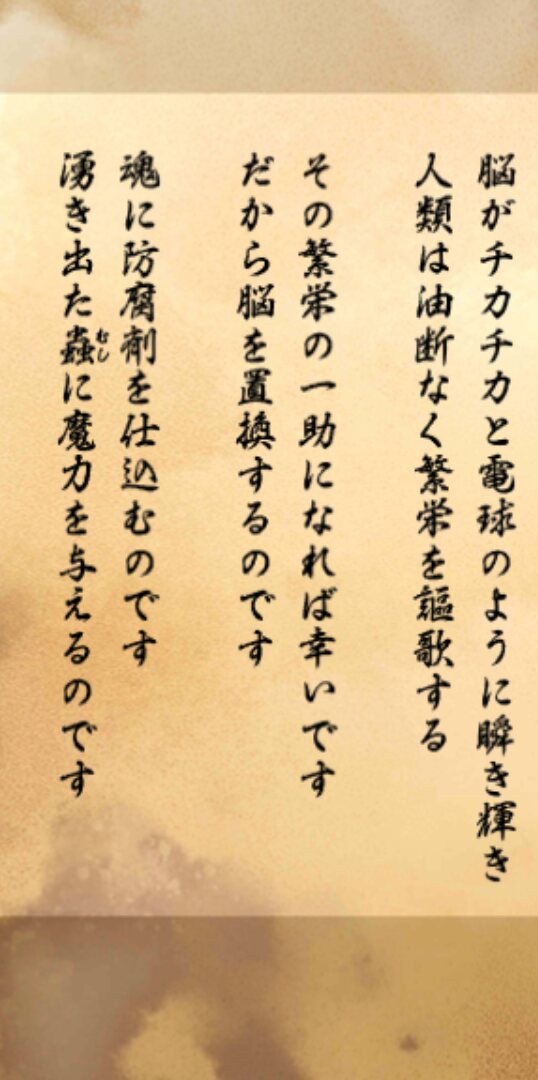 脳がチカチカと電球のように瞬き輝き
人類は油断なく繁栄を謳歌する
その繁栄の一助になれば幸いです
だから脳を置換するのです
魂に防腐剤を仕込むのです
湧き出た蟲に魔力を与えるのです
むし